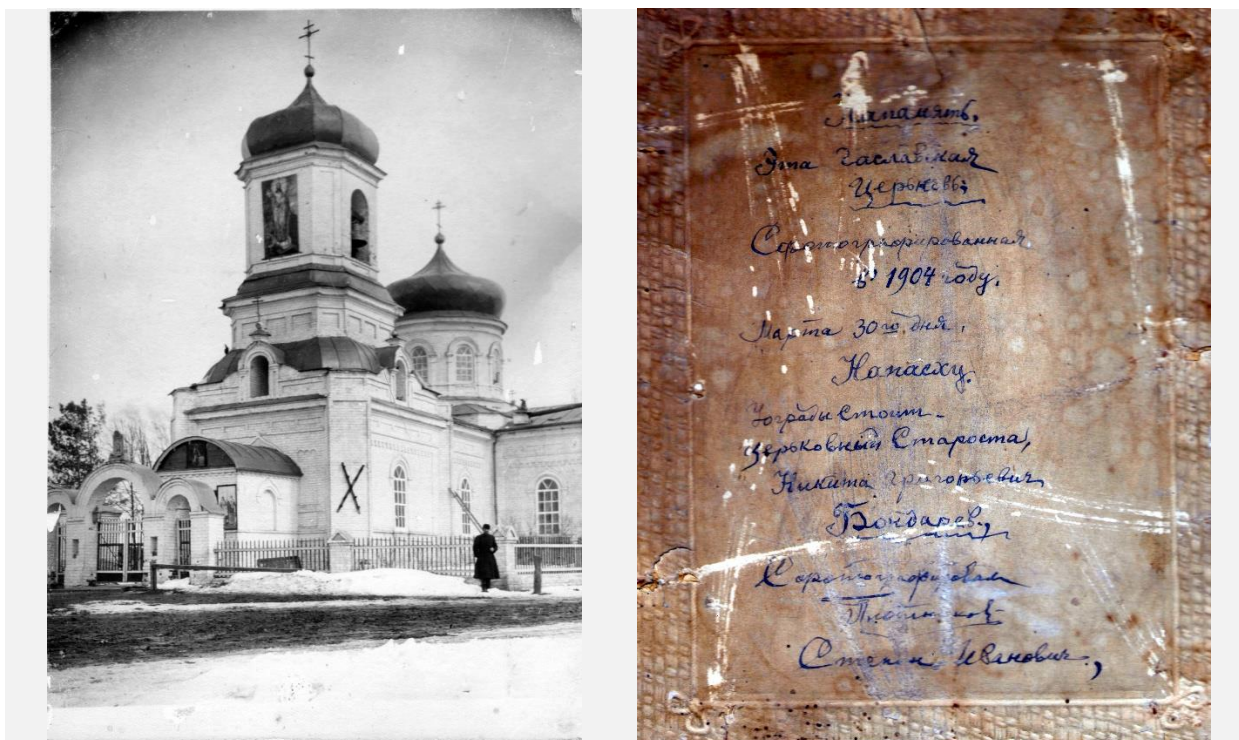 Напамять.
Эта Гаславская
Церьковь;
Сфотографированная
в 1904 году.
Марта 30го дня.
Напасху.
Уограды Стоит
Церьковный Староста,
Никита Григорьевич
Бондарев.,
Сфотографировал
Плотников
Степан Иванович.,